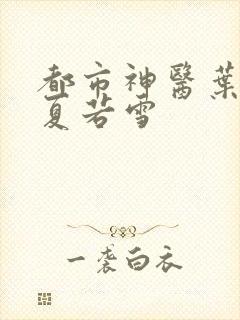 都市神醫葉
夏若雪
一袭白衣